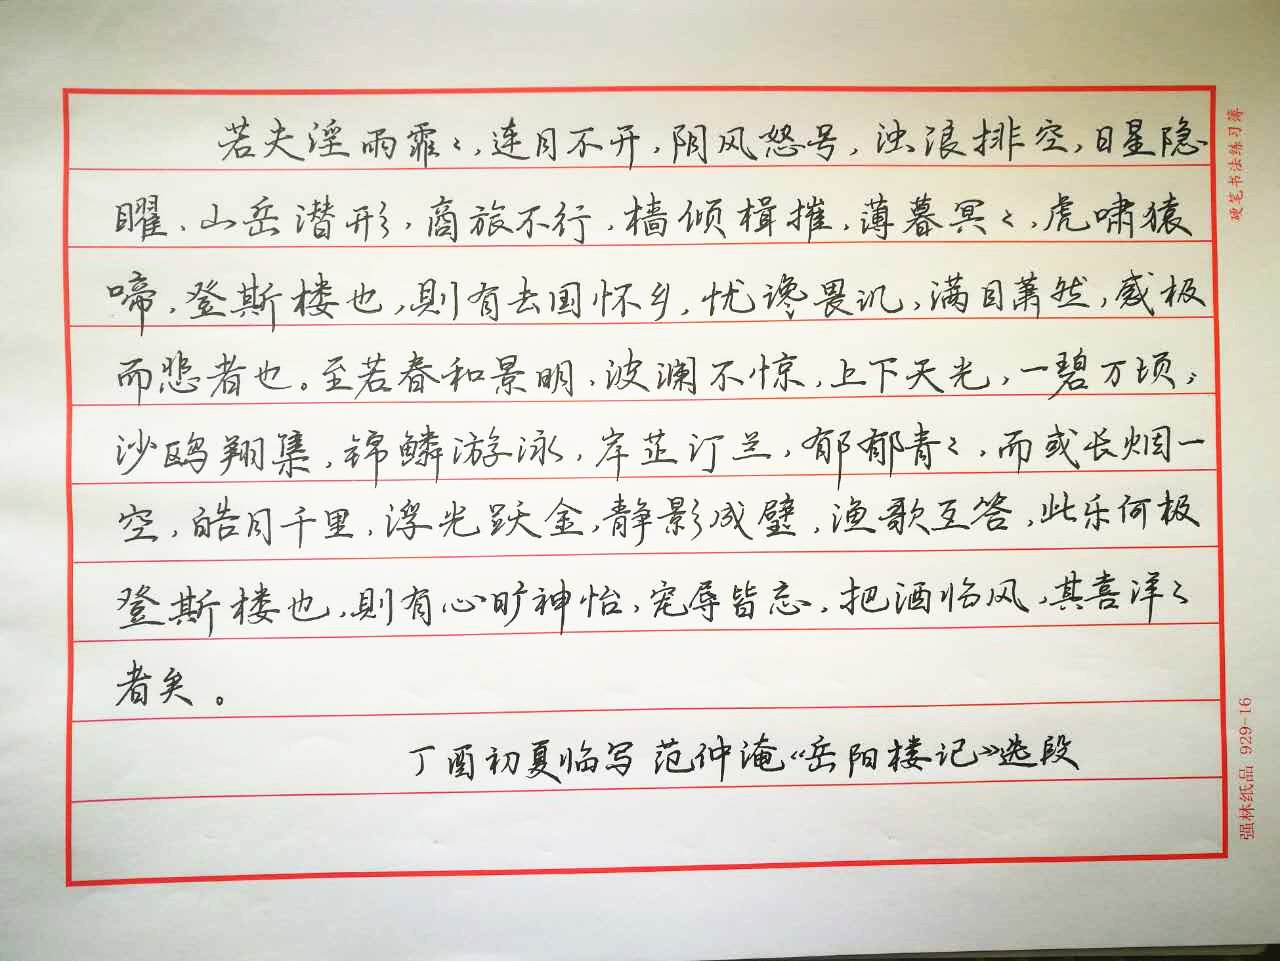 若夫淫雨霏〻,连月不开,阴风怒号,浊浪排空,日星隐
曜、山岳潜形,商旅不行,樯倾楫摧,薄暮冥〻,虎啸猿
啼,登斯楼也,则有去国怀乡,忧谗畏讥,满目萧然,感极
而悲者也。至若春和景明,波澜不惊,上下天光,一碧万顷;
沙鸥翔集,锦鳞游泳,岸芷汀兰,郁郁青〻,而或长烟一
空,皓月千里,浮光跃金,静影成璧,渔歌互答,此乐何极
登斯楼也,则有心旷神怡,宠辱皆忘,把酒临风,其喜洋〻
者矣。
丁酉初夏临写 范仲淹《岳阳楼记》选段
硬笔书法练习簿
强林纸品 929-16